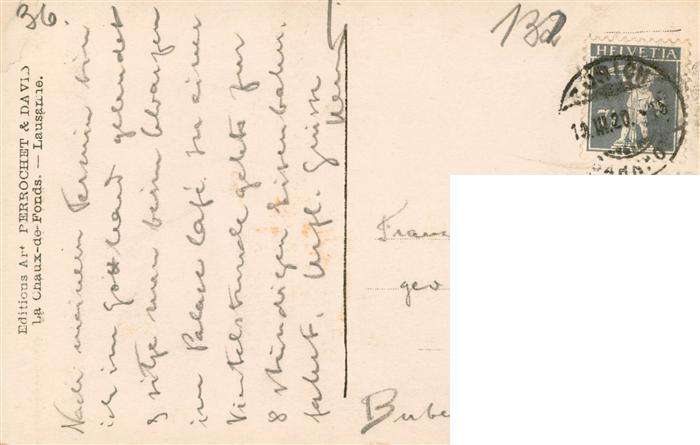 36.
132
HELVETIA
ZÜRICH
13.III.20.-15
BAHNHO
Editions Art PERROCHET & DAVID
La Chaux-de-Fonds. — Lausanne.
Nach meinem Termin bin
ich im Gotthard gelandet
& sitze nun beim schwarzen
im Palace Café. In einer
Viertelstunde gehts zur
8 stündigen Eisenbahn-
fahrt. Herzl. Grüsse
Franz
gev
Bube